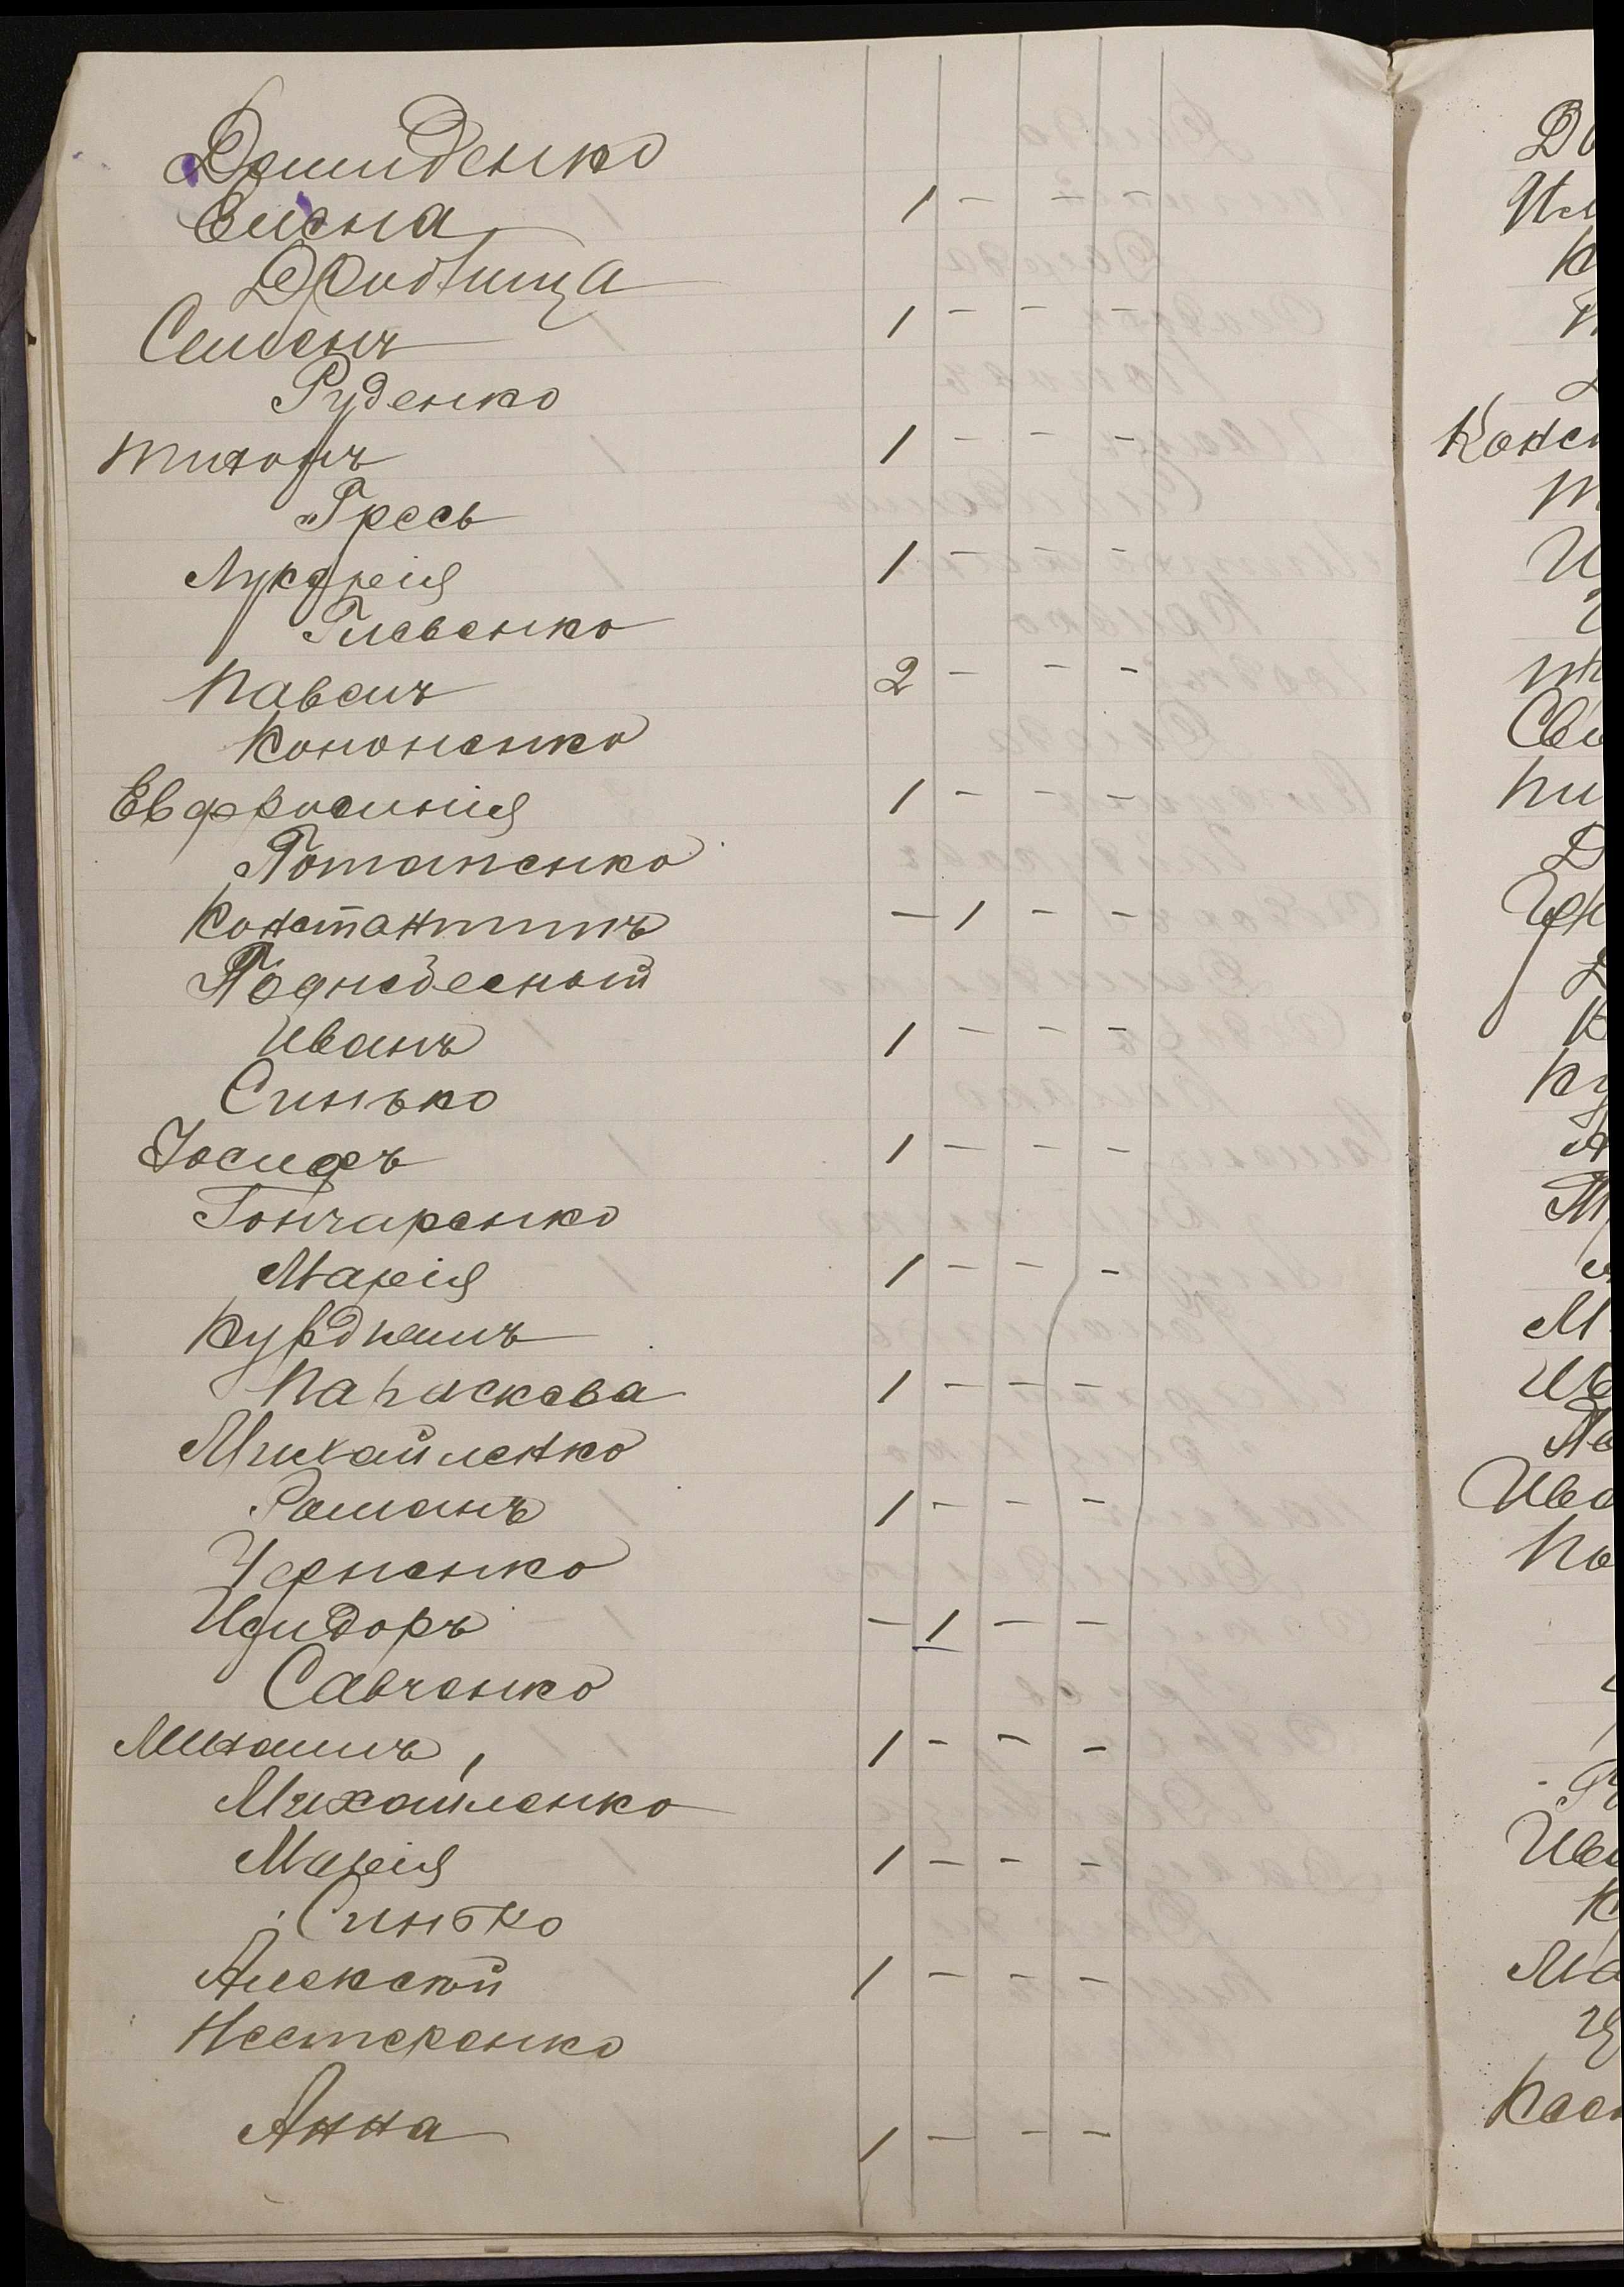 Демиденко
Елена 1 - - -
Дробница
Семенъ 1 - - -
Руденко
Тихонъ 1 - - -
Гресь
Лукерія 1 - - -
Глевенко
Павелъ 2 - - -
Кононенко
Евфросинія 1 - - -
Потапенко
Константинъ - 1 - -
Поднебесный
Иванъ 1 - - -
Синько
Іосифъ 1 - - -
Гончаренко
Марія 1 - - -
Параскева 1 - - -
Михайленко
Романъ 1 - - -
Черненко
Исидоръ - 1 - -
Савченко
Михаилъ 1 - - -
Михайленко
Марія 1 - - -
Синько
Алексѣй 1 - - -
Нестеренко
Анна 1 - - -